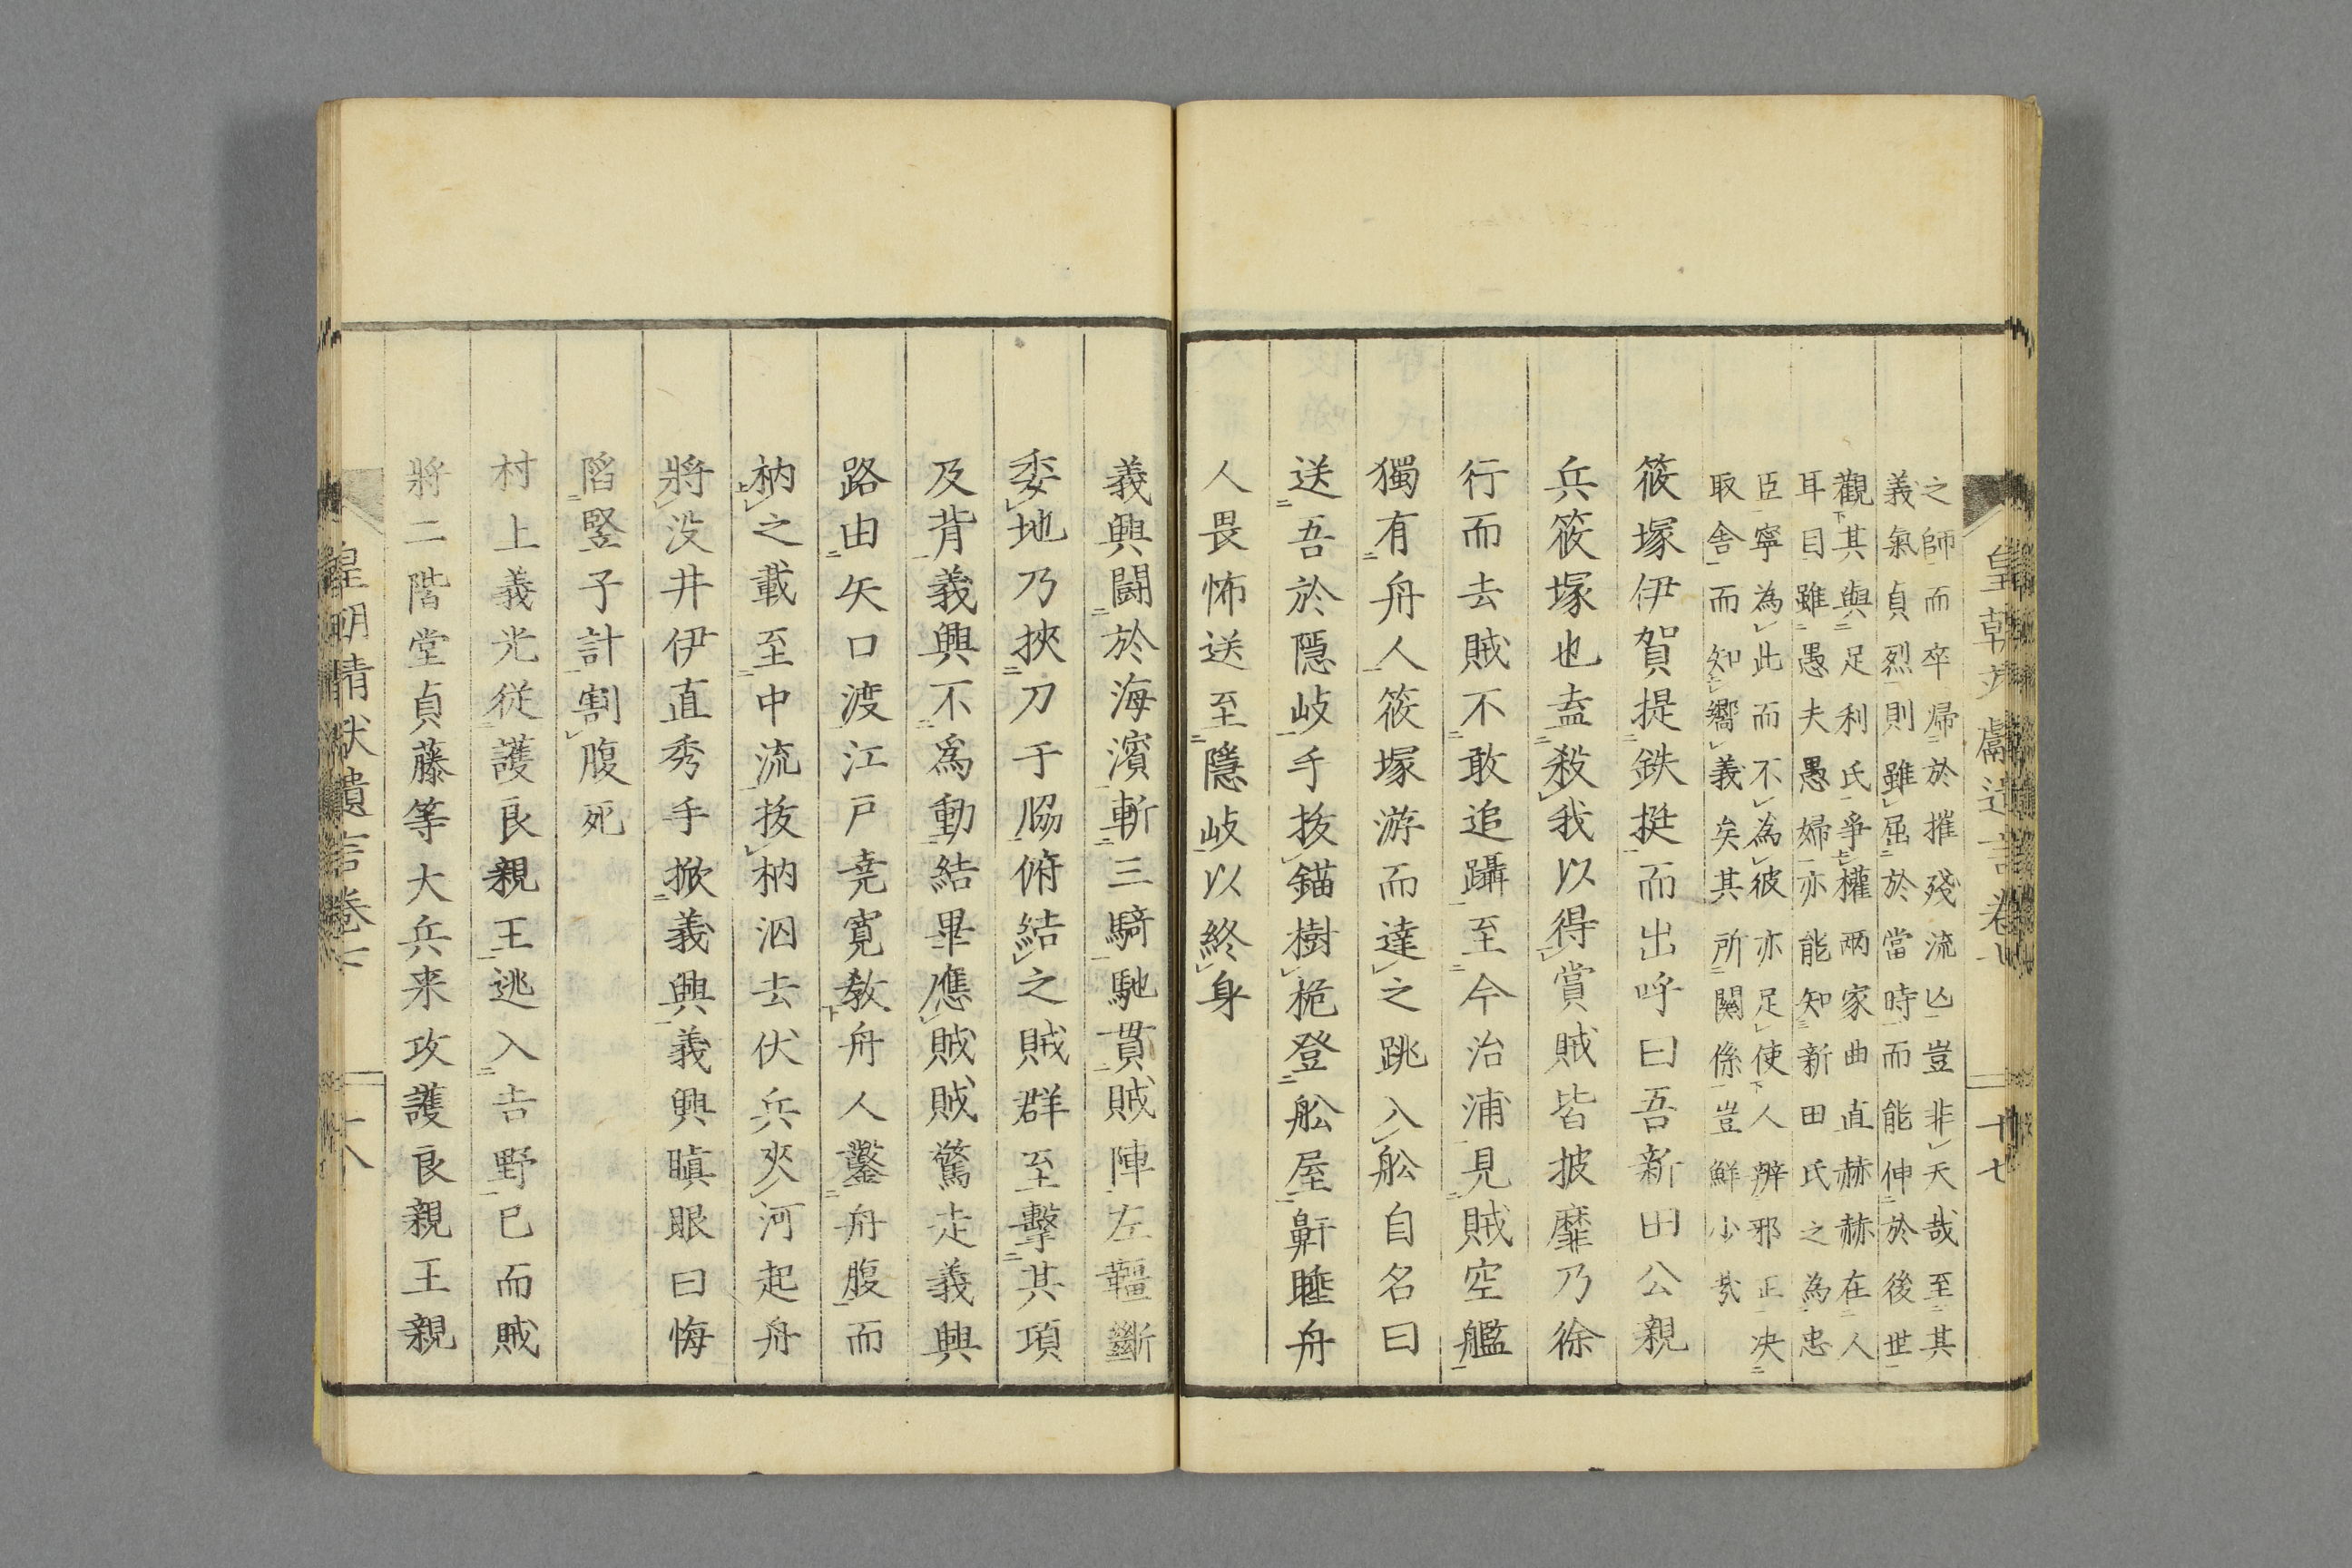 之師而卒歸於摧殘流亾豈非天哉至其
義氣貞烈則雖屈於當時而能伸於後世
觀其與足利氏爭權兩家曲直赫赫在人
耳目雖愚夫愚婦亦能知新田氏之為忠
臣寧為此而不為彼亦足使人辨邪正决
取舍而知嚮義矣其所關係豈鮮少㢤
筱塚伊賀提鉄挺而出呼曰吾新田公親
兵筱塚也盍殺我以得賞賊皆披靡乃徐
行而去賊不敢追躡至今治浦見賊空艦
獨有舟人筱塚游而達之跳入舩自名曰
送吾於隱岐手抜錨樹桅登舩屋鼾睡舟
人畏怖送至隱岐以終身
十七
義興鬪於海濱斬三騎馳貫賊陣左韁斷
委地乃挾刀于脇俯結之賊群至擊其項
及背義興不爲動結畢應賊賊驚走義興
路由矢口渡江戸尭寛敎舟人鑿舟腹而
枘之載至中流抜枘泅去伏兵夾河起舟
將没井伊直秀手掀義興義興瞋眼曰悔
䧟竪子計割腹死
村上義光従護良親王逃入吉野已而賊
將二階堂貞藤等大兵来攻護良親王親